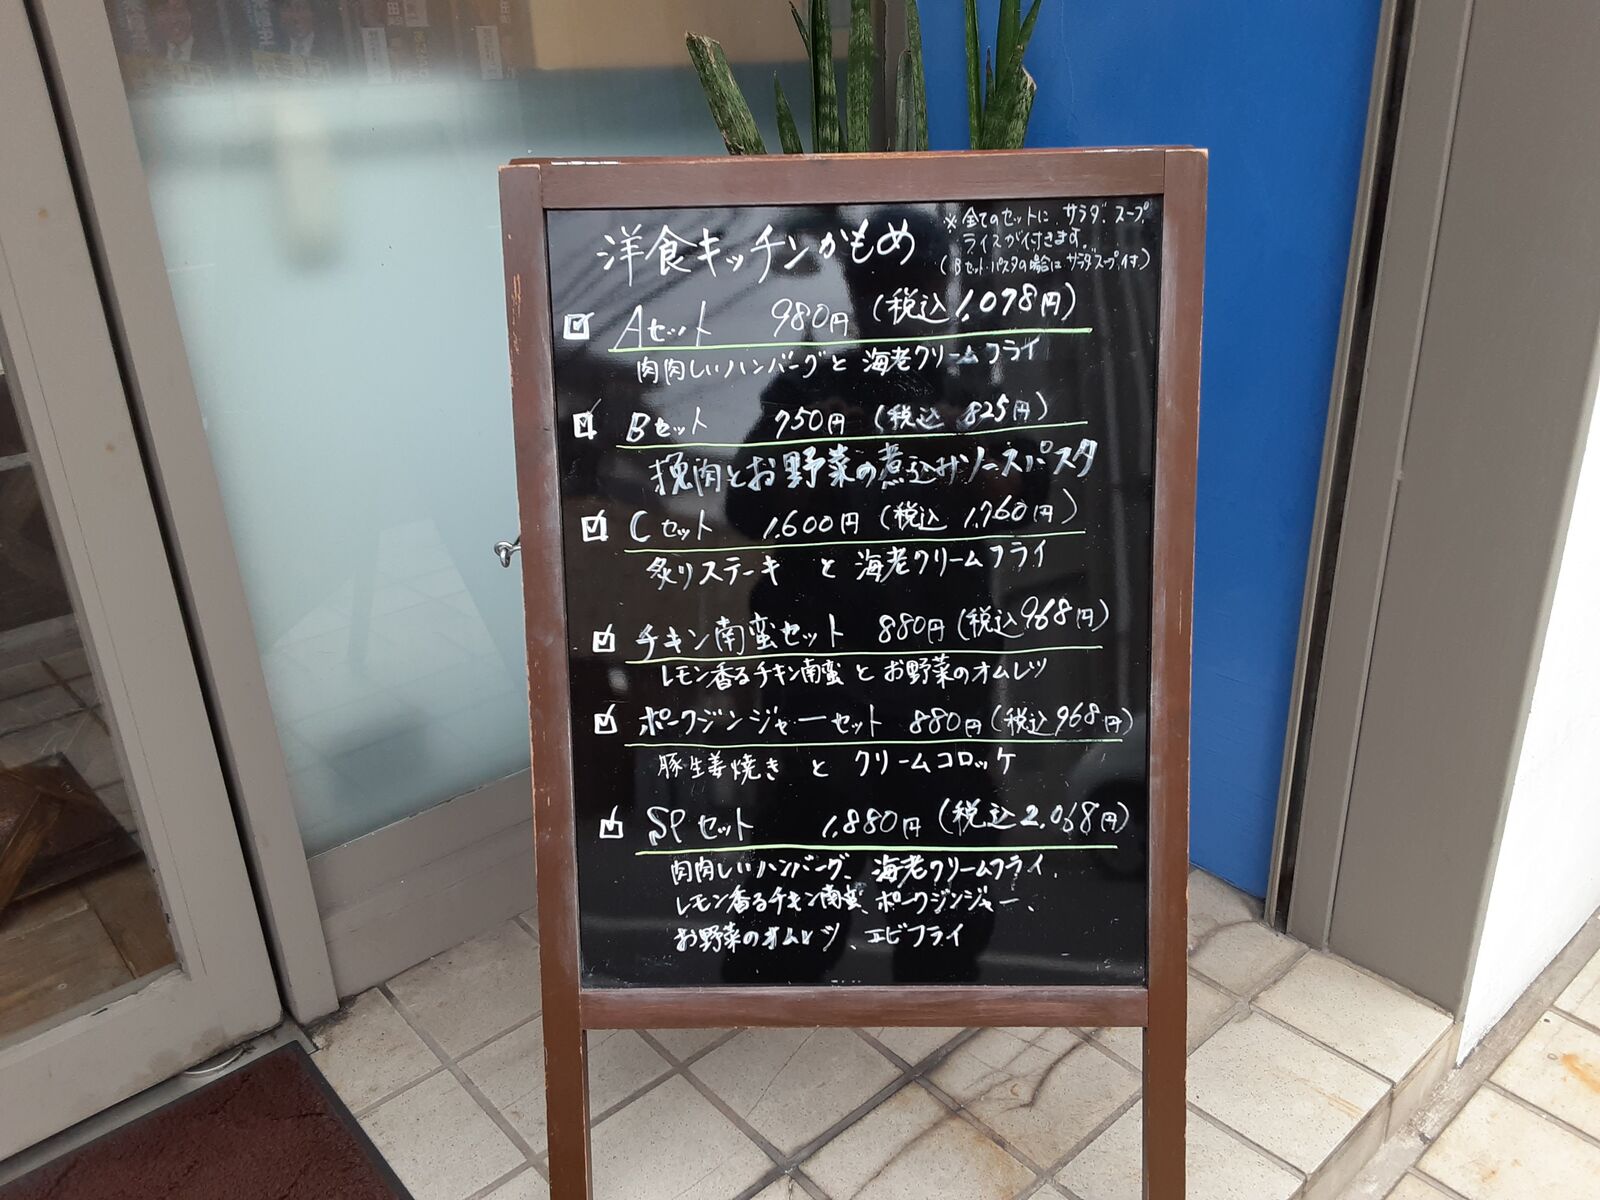 洋食キッチンかもめ
※全てのセットに サラダ、スープ、
ライスが付きます。
(Bセット・パスタの場合は サラダスープ付)
Aセット 980円 (税込 1,078円)
肉肉しいハンバーグと 海老クリームフライ
Bセット 750円 (税込 825円)
挽肉とお野菜の煮込みソースパスタ
Cセット 1,600円 (税込 1,760円)
炙りステーキ と 海老クリームフライ
チキン南蛮セット 880円 (税込 968円)
レモン香るチキン南蛮 と お野菜のオムレツ
ポークジンジャーセット 880円 (税込 968円)
豚生姜焼き と クリームコロッケ
SPセット 1,880円 (税込 2,068円)
肉肉しいハンバーグ、海老クリームフライ、
レモン香るチキン南蛮、ポークジンジャー、
お野菜のオムレツ、エビフライ